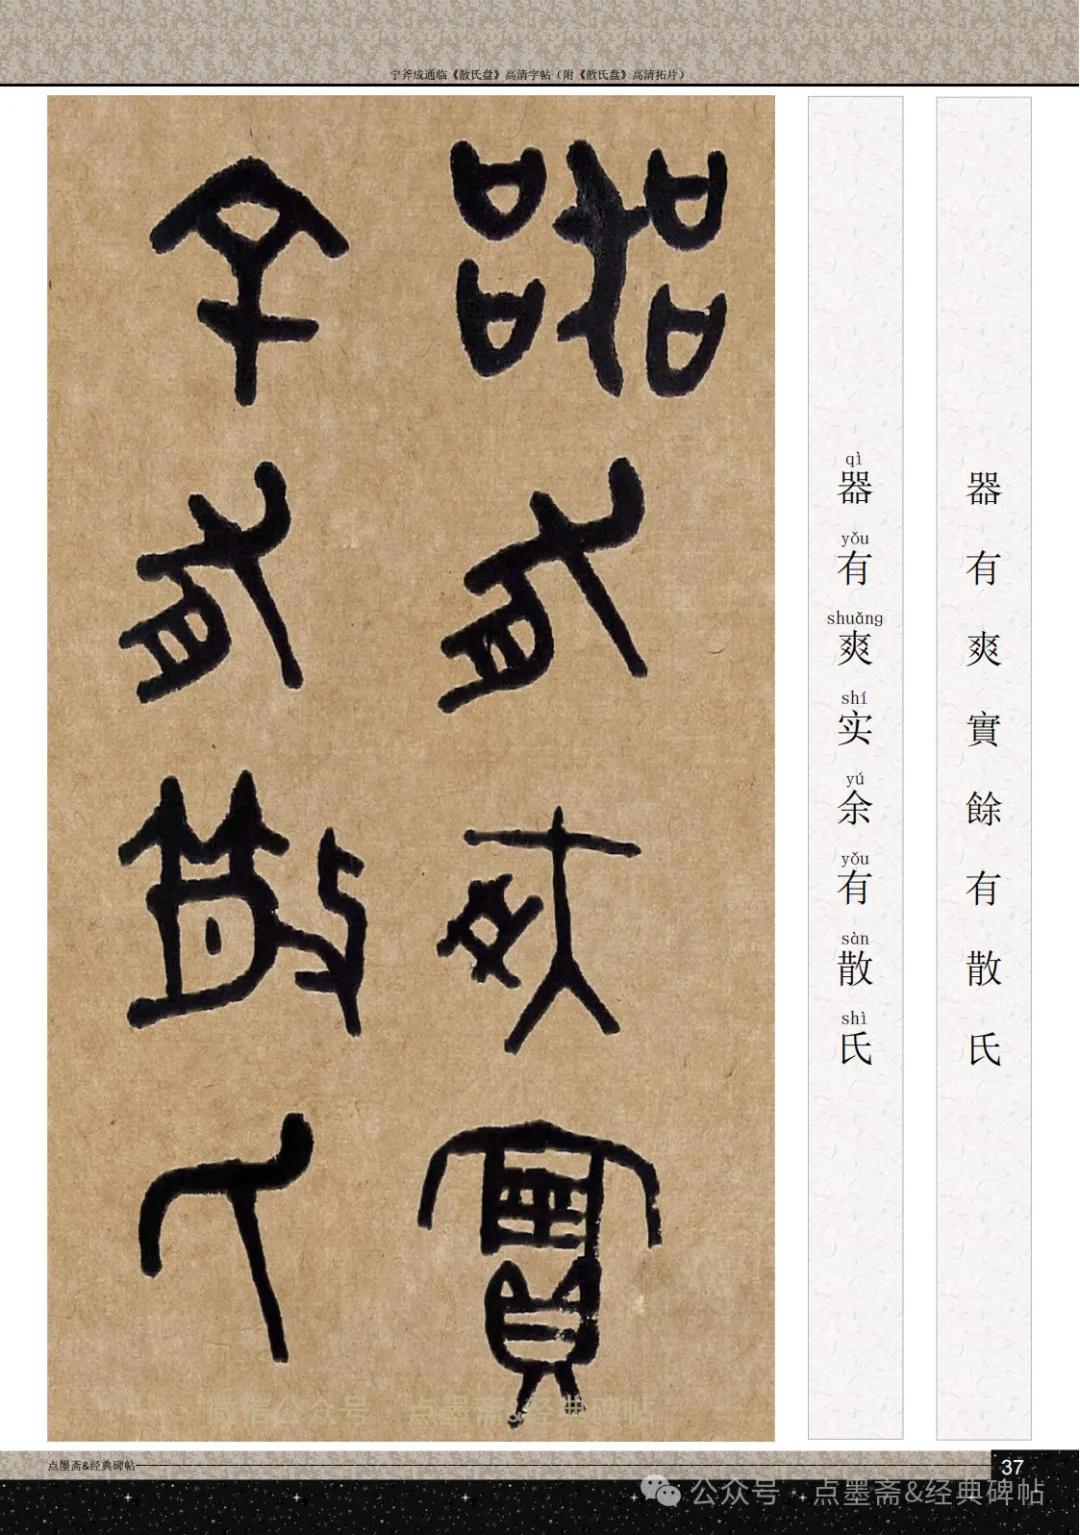 宁斧成通临《散氏盘》高清字帖（附《散氏盘》高清拓片）
器有爽實
余有散氏
器有爽實餘有散氏
qì yǒu shuǎng shí yú yǒu sàn shì
器有爽实余有散氏
公众号 点墨斋&经典碑帖
点墨斋&经典碑帖
37
公众号·点墨斋&经典碑帖